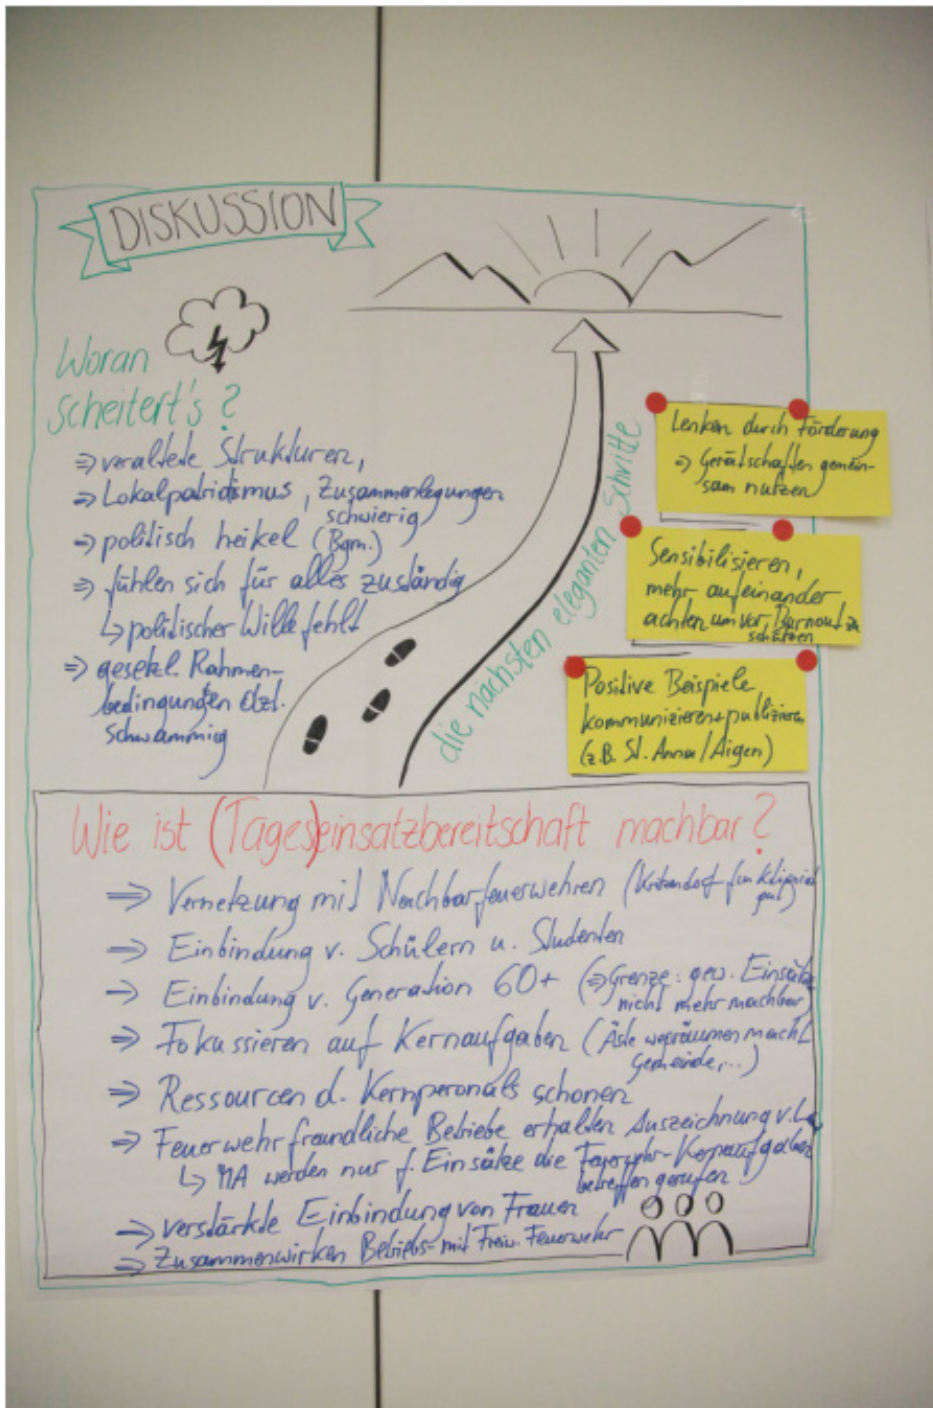 DISKUSSION
Woran
scheitert's?
⇒ veraltete Strukturen,
⇒ Lokalpatriotismus, Zusammenlegungen
schwierig
⇒ politisch heikel (Bgm.)
⇒ fühlen sich für alles zuständig
↳ politischer Wille fehlt
⇒ gesetzl. Rahmen-
bedingungen etzl.
schwammig
die nächsten eleganten Schritte
Lenken durch Förderung
⇒ Gerätschaften gemein-
sam nutzen
Sensibilisieren,
mehr aufeinander
achten um vor Burnout zu
schützen
Positive Beispiele
kommunizieren + publizieren
(z.B. St. Anna/Aigen)
Wie ist (Tages)einsatzbereitschaft machbar?
⇒ Vernetzung mit Nachbarfeuerwehren (Kritzendorf
⇒ Einbindung v. Schülern u. Studenten
⇒ Einbindung v. Generation 60+ (⇒ Grenze: gew. Einsätze
nicht mehr machbar)
⇒ Fokussieren auf Kernaufgaben (Äste wegräumen macht
Gemeinde,...)
⇒ Ressourcen d. Kernperonals schonen
⇒ Feuerwehrfreundliche Betriebe erhalten Auszeichnung v.
↳ MA werden nur f. Einsätze die Feuerwehr-Kernaufgaben
betreffen gerufen
⇒ verstärkte Einbindung von Frauen
⇒ Zusammenwirken Betriebs- mit Freiw. Feuerwehr